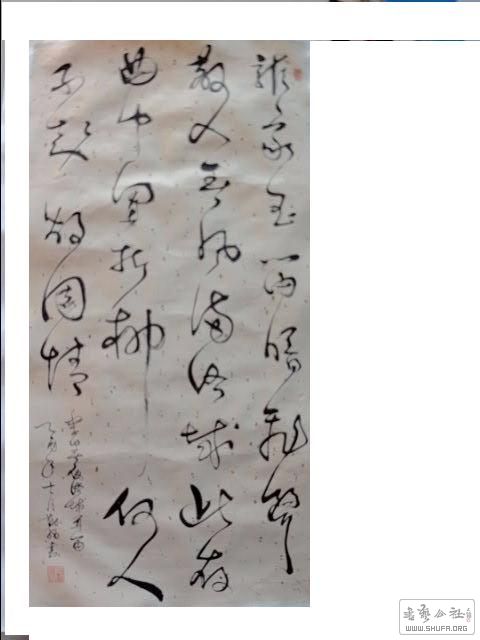 誰家玉笛暗飛聲
散入春風滿洛城此夜
曲中聞折柳何人
不起故園情
李白春夜洛城聞笛
年十月書
书艺公社
WWW.SHUFA.ORG